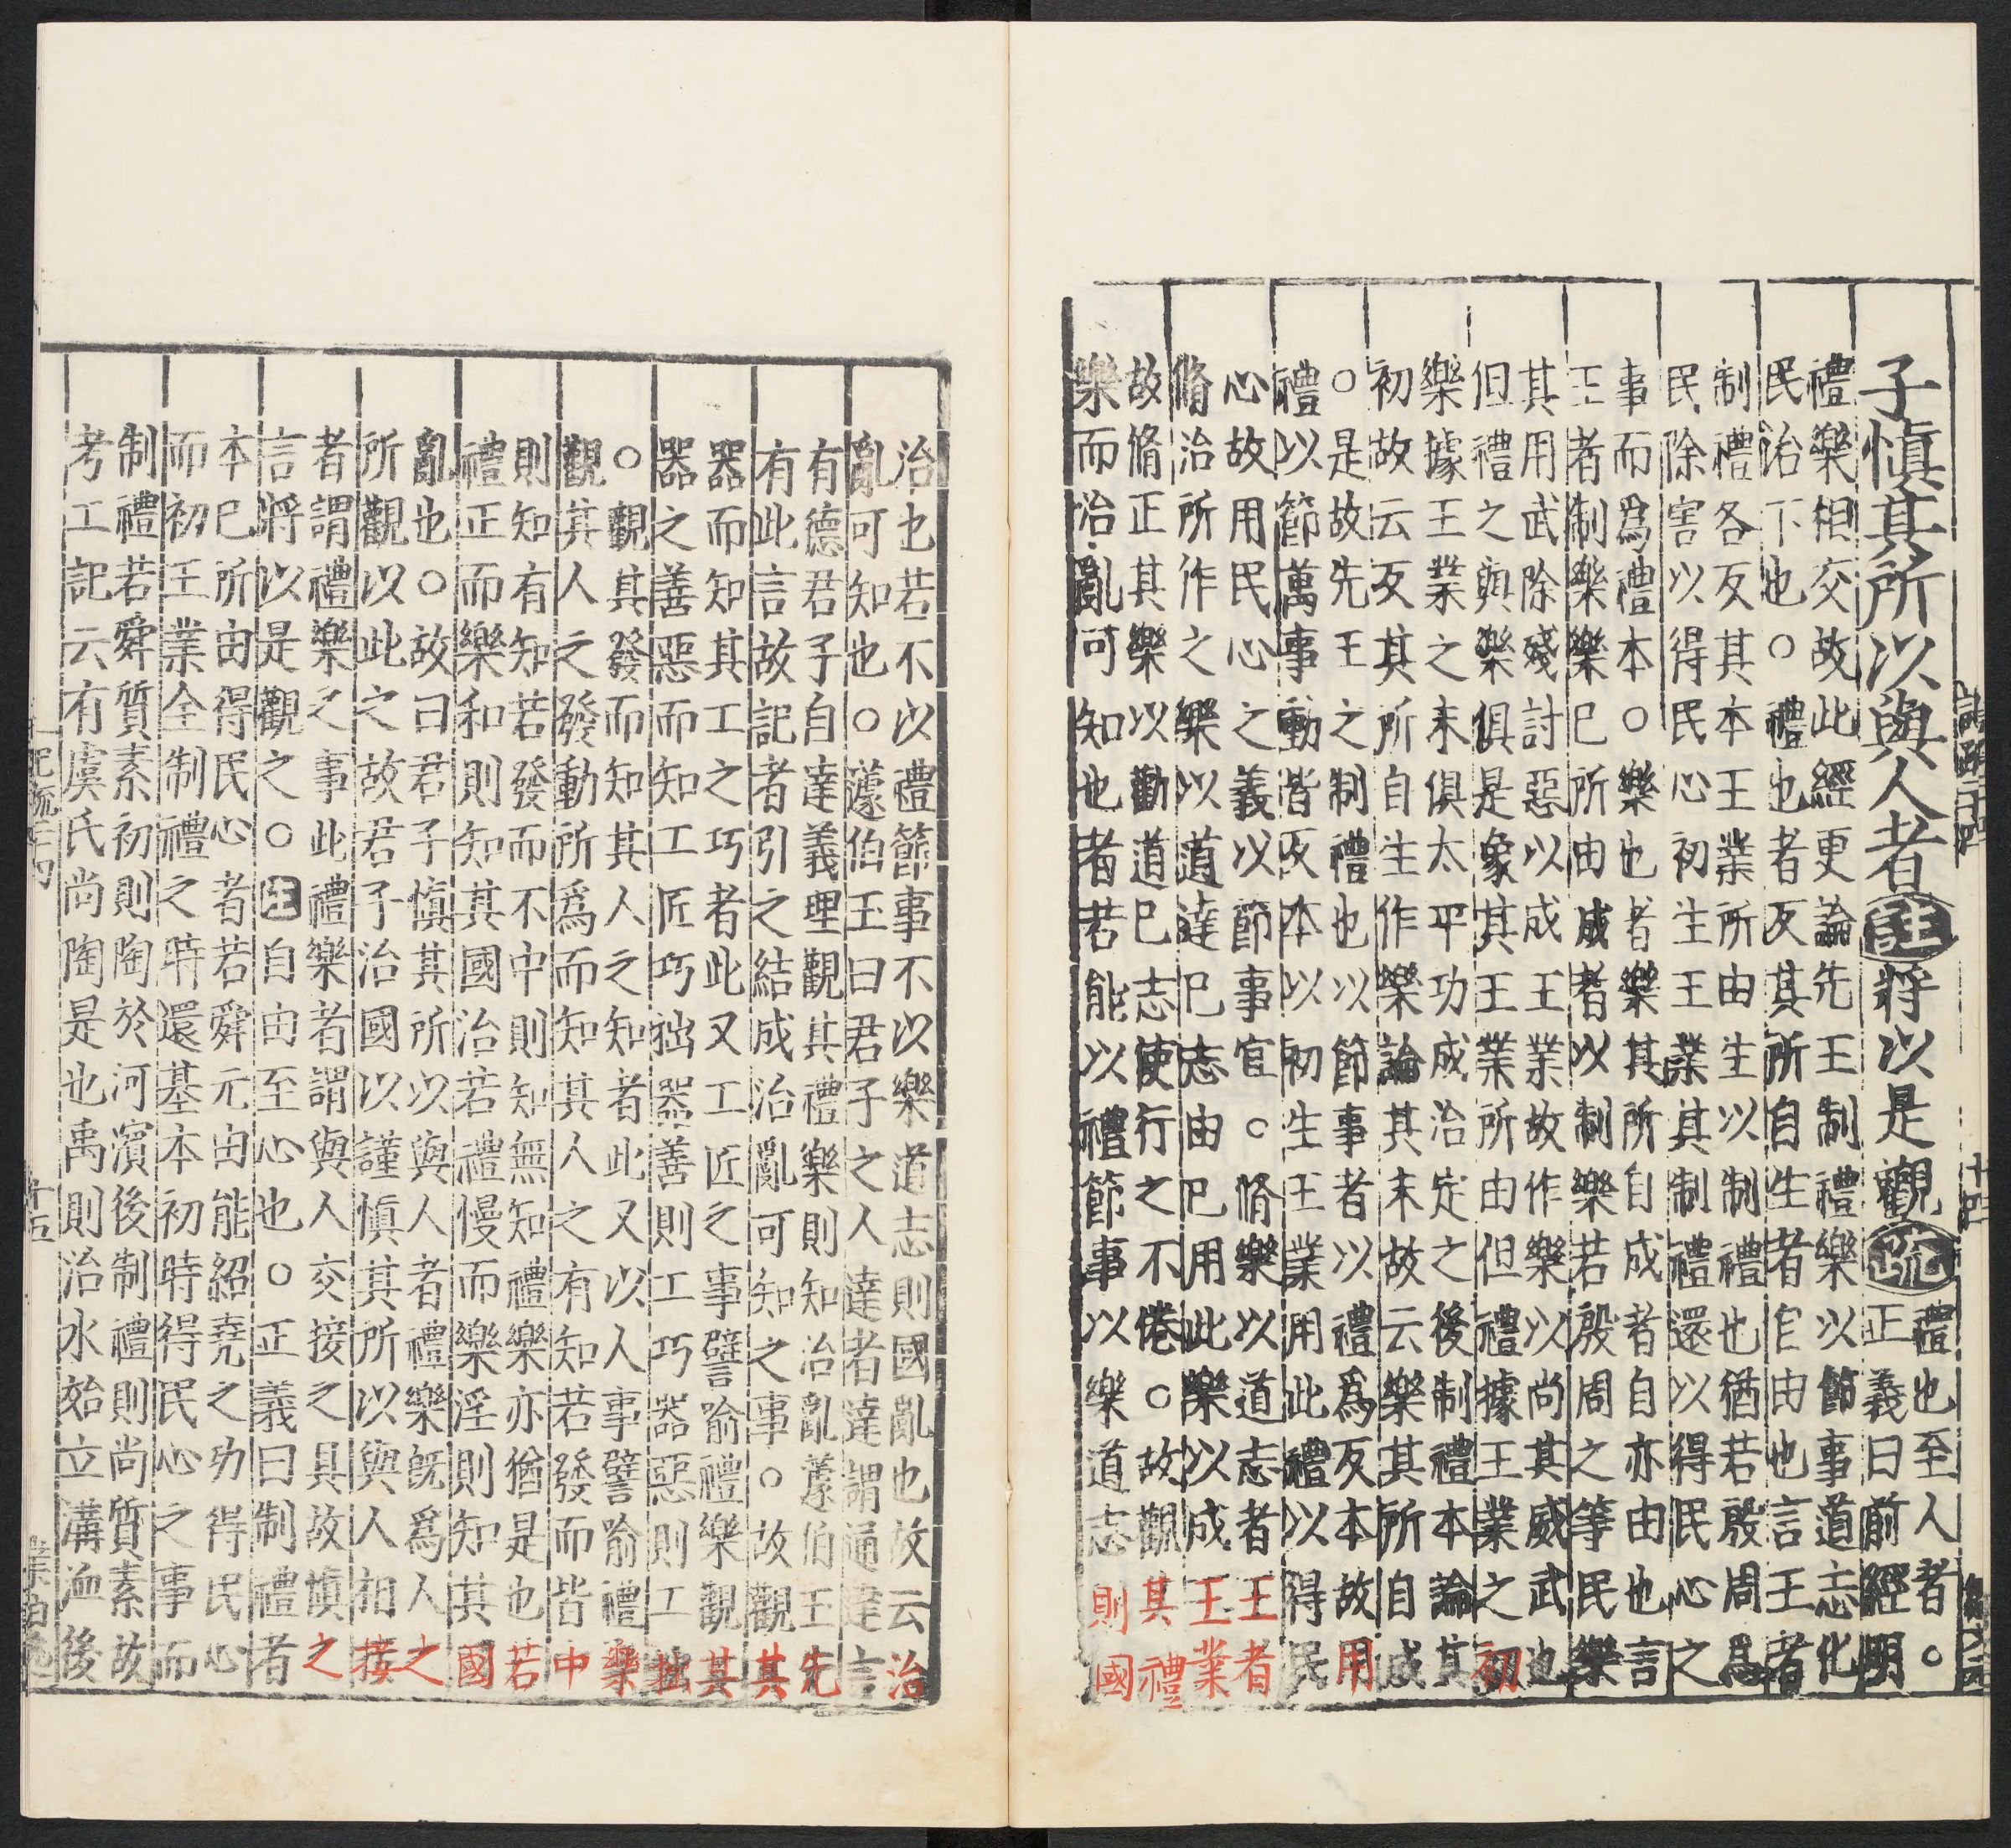 子慎其所以與人者註將以是觀疏禮也至人者○
正義曰前經明
禮樂相交故此經更論先王制禮樂以節事道志化
民治下也○禮也者反其所自生者自由也言王者
制禮各反其本王業所由生以制禮也猶若殷周爲
民除害以得民心初生王業其制禮還以得民心之
事而爲禮本○樂也者樂其所自成者自亦由也言
王者制樂樂已所由成者以制樂若殷周之等民樂
其用武除殘討惡以成王業故作樂以尚其威武也
但禮之與樂俱是象其王業所由但禮據王業之初
樂據王業之末俱太平功成治定之後制禮本論其
初故云反其所自生作樂論其末故云樂其所自成
○是故先王之制禮也以節事者以禮爲反本故用
禮以節萬事動皆反本以初生王業用此禮以得民
心故用民心之義以節事官○脩樂以道志者王者
脩治所作之樂以道達巳志由巳用此樂以成王業
故脩正其樂以勸道巳志使行之不倦○故觀其禮
樂而治亂可知也者若能以禮節事以樂道志則國
治也若不以禮節事不以樂道志則國亂也故云治
亂可知也○蘧伯玉曰君子之人達者達謂通達言
有德君子自達義理觀其禮樂則知治亂蘧伯玉先
有此言故記者引之結成治亂可知之事○故觀其
器而知其工之巧者此又工匠之事譬喻禮樂觀其
器之善惡而知工匠巧拙器善則工巧器惡則工拙
○觀其發而知其人之知者此又以人事譬喻禮樂
觀其人之發動所爲而知其人之有知若發而皆中
則知有知若發而不中則知無知禮樂亦猶是也若
禮正而樂和則知其國治若禮慢而樂淫則知其國
亂也○故曰君子慎其所以與人者禮樂既爲人之
所觀以此之故君子治國以謹慎其所以與人相接
者謂禮樂之事此禮樂者謂與人交接之具故慎之
言將以是觀之○注自由至心也○正義曰制禮者
本巳所由得民心者若舜元由能紹堯之功得民心
而初王業全制禮之時還基本初時得民心之事而
制禮若舜質素初則陶於河濱後制禮則尚質素故
考工記云有虞氏尚陶是也禹則治水始立溝洫後